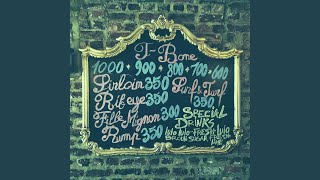 T-Bone
1000 • 900 • 800 • 700 • 600
Sirloin 350 Surf & Turf
Rib eye 350 350
Fille Mignon 300 SPECIAL
Rump 350 DRINKS